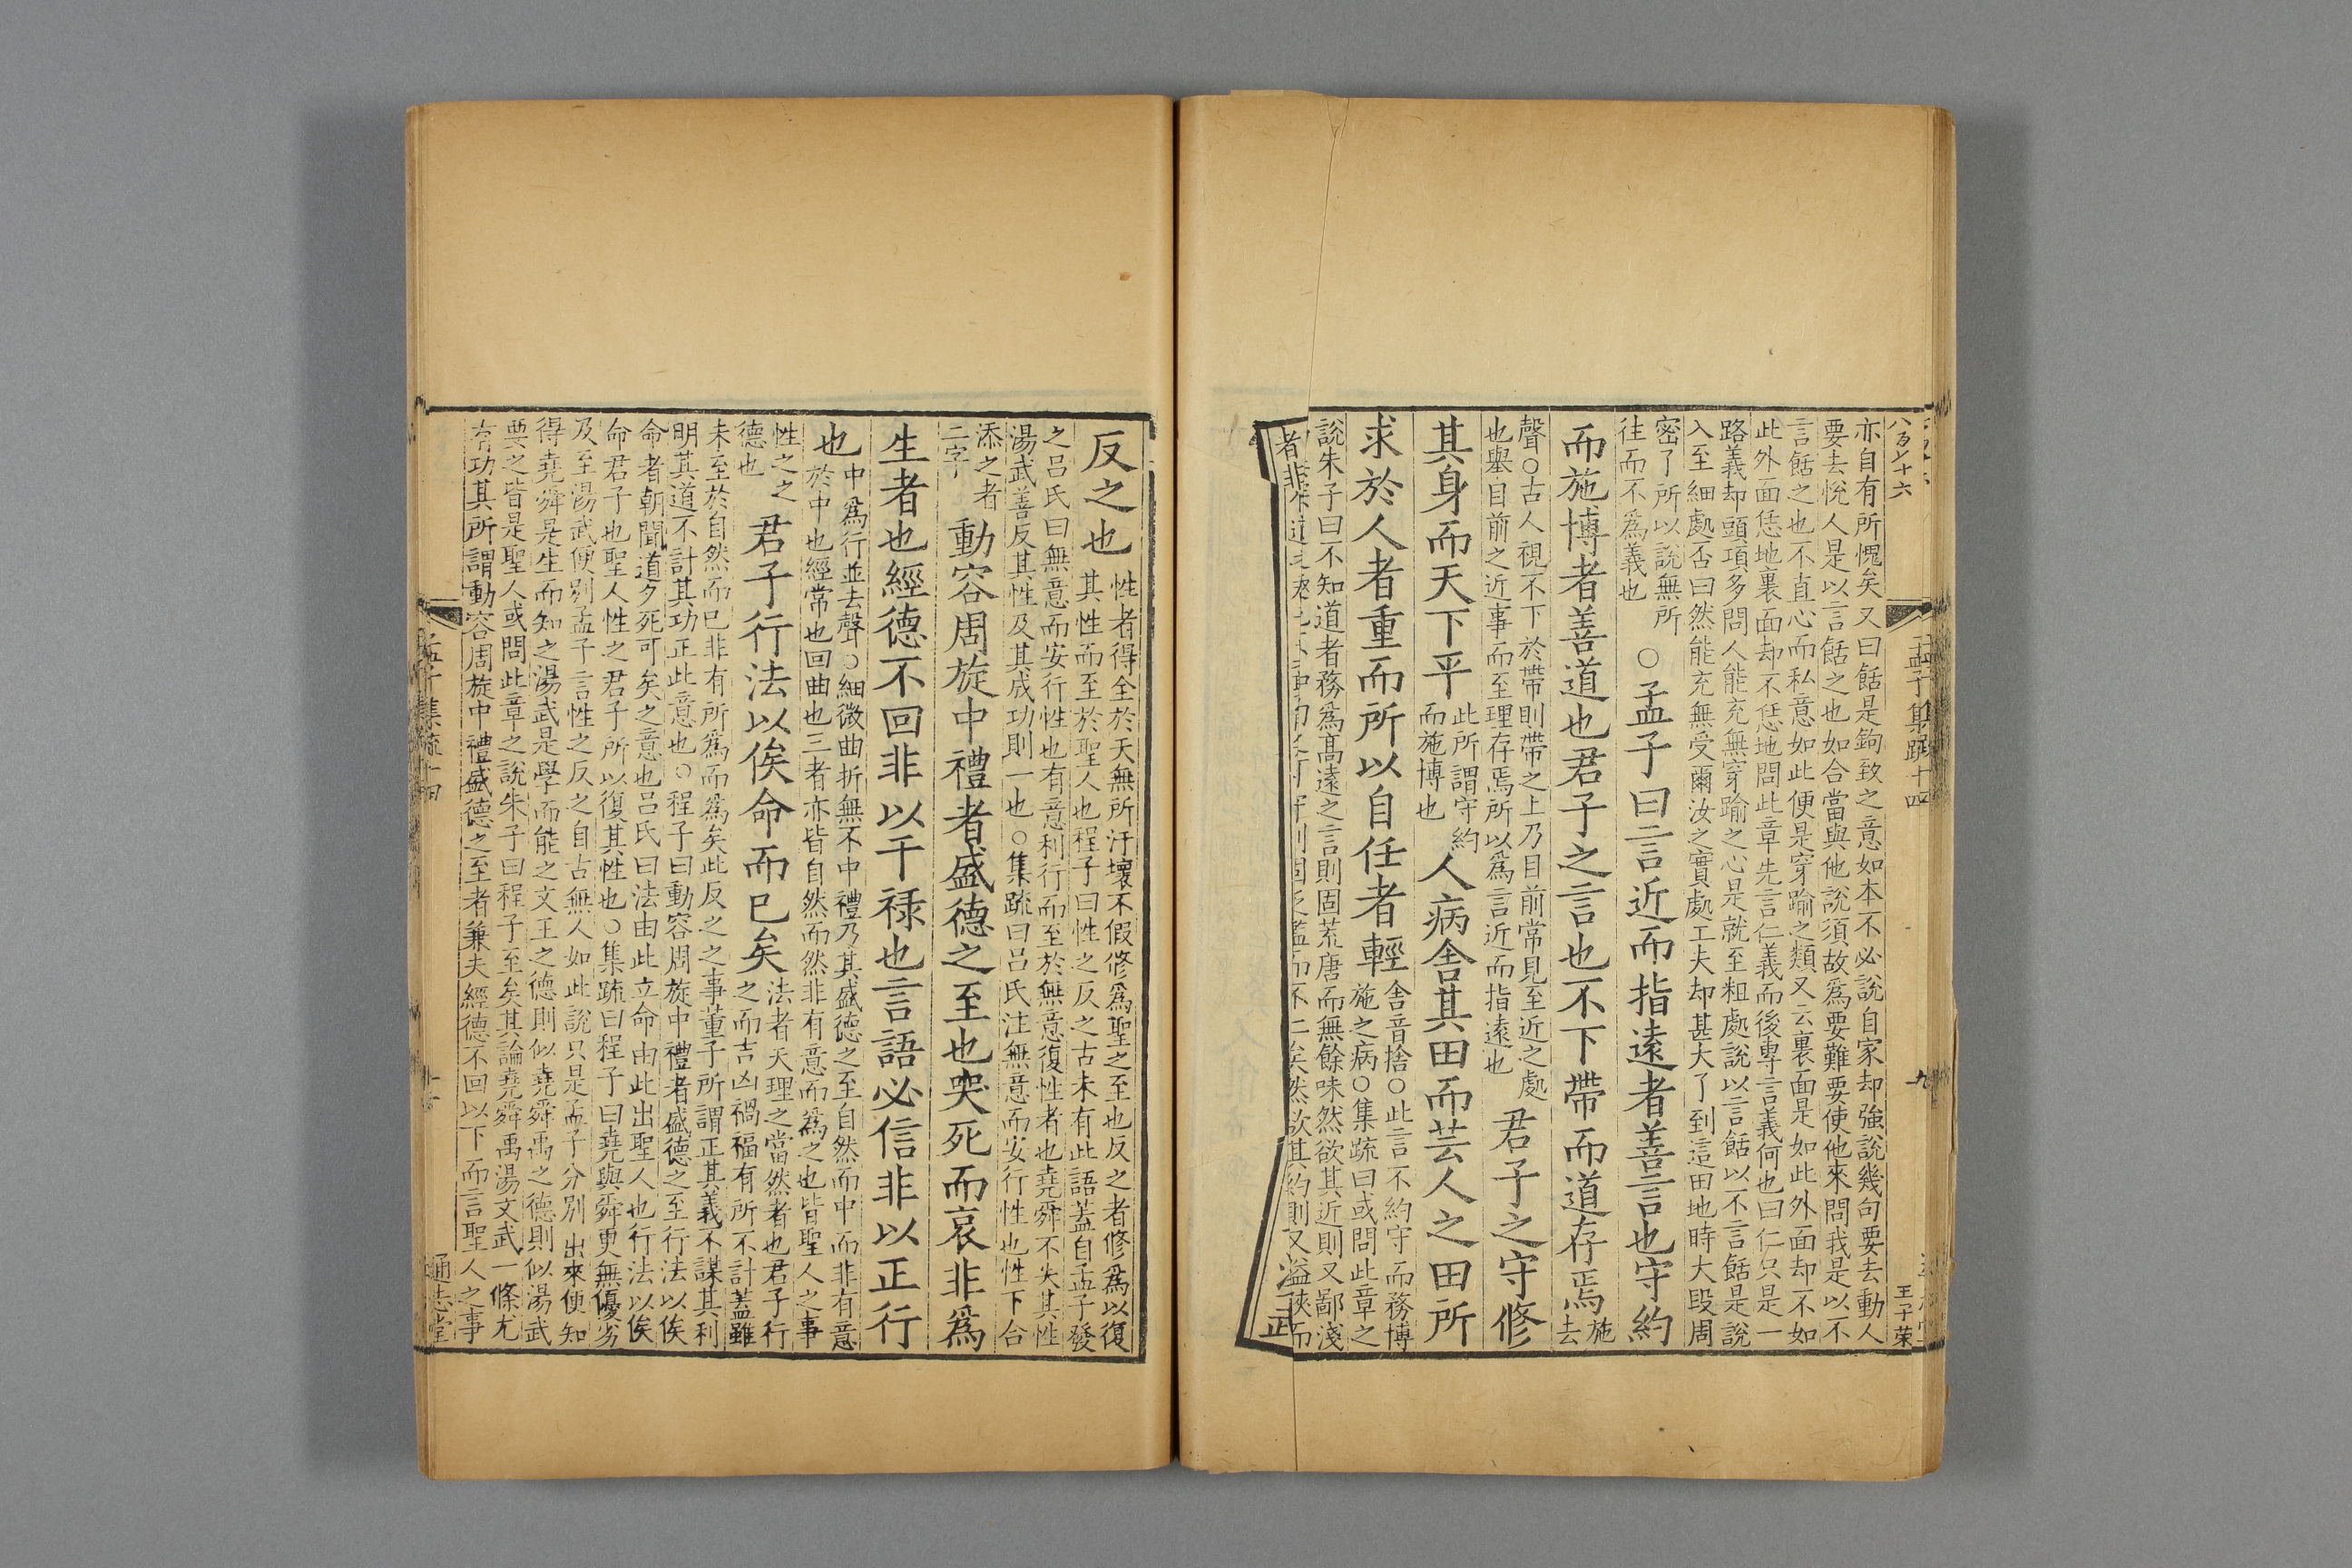 八百十六
孟子集疏十四
九
王子荣
亦自有所愧矣又曰餂是鉤致之意如本不必說自家却強說幾句要去動人
要去悅人是以言餂之也如合當與他說須故爲要難要使他來問我是以不
言餂之也不直心而私意如此便是穿踰之類又云裏面是如此外面却不如
此外面恁地裏面却不恁地問此章先言仁義而後專言義何也曰仁只是一
路義却頭項多問人能充無穿踰之心是就至粗處說以言餂以不言餂是說
入至細處否曰然能充無受爾汝之實處工夫却甚大了到這田地時大段周
密了所以說無所
往而不爲義也
○孟子曰言近而指遠者善言也守約
而施博者善道也君子之言也不下帶而道存焉
施去
聲○古人視不下於帶則帶之上乃目前常見至近之處
也舉目前之近事而至理存焉所以爲言近而指遠也
君子之守修
其身而天下平
此所謂守約
而施博也
人病舍其田而芸人之田所
求於人者重而所以自任者輕
舍音捨○此言不約守而務博
施之病○集疏曰或問此章之
說朱子曰不知道者務爲高遠之言則固荒唐而無餘味然欲其近則又鄙淺
反之也
性者得全於天無所汙壞不假修爲聖之至也反之者修爲以復
其性而至於聖人也程子曰性之反之古未有此語蓋自孟子發
之呂氏曰無意而安行性也有意利行而至於無意復性者也堯舜不失其性
湯武善反其性及其成功則一也○集疏曰呂氏注無意而安行性也性下合
添之者
二字
動容周旋中禮者盛德之至也哭死而哀非爲
生者也經德不回非以干祿也言語必信非以正行
也
中爲行並去聲○細微曲折無不中禮乃其盛德之至自然而中而非有意
於中也經常也回曲也三者亦皆自然而然非有意而爲之也皆聖人之事
性之之
德也
君子行法以俟命而已矣
法者天理之當然者也君子行
之而吉凶禍福有所不計蓋雖
未至於自然而已非有所爲而爲矣此反之之事董子所謂正其義不謀其利
明其道不計其功正此意也○程子曰動容周旋中禮者盛德之至行法以俟
命者朝聞道夕死可矣之意也呂氏曰法由此立命由此出聖人也行法以俟
命君子也聖人性之君子所以復其性也○集疏曰程子曰堯與舜更無優劣
及至湯武便別孟子言性之反之自古無人如此說只是孟子分別出來便知
得堯舜是生而知之湯武是學而能之文王之德則似堯舜禹之德則似湯武
要之皆是聖人或問此章之說朱子曰程子至矣其論堯舜禹湯文武一條尤
有功其所謂動容周旋中禮盛德之至者兼夫經德不回以下而言聖人之事
孟子集疏十四
通志堂